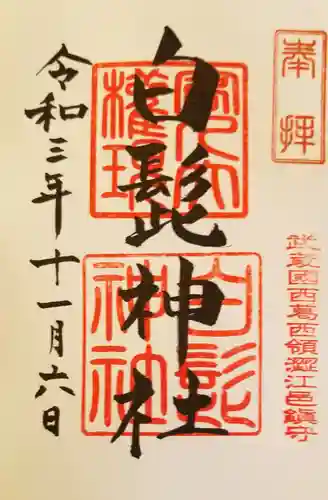 奉拝
武蔵國西葛西領澀江邑鎮守
白髭神社
白髭神社
令和三年十一月六日